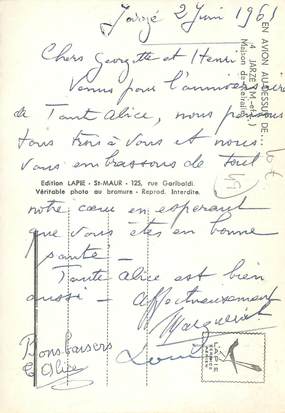 Jarzé 2 Juin 1961
Chers Georgette et Henri
Venus pour l'anniversaire
de Tante Alice, nous pensons
tous trois à Vous et nous
Vous embrassons de tout
notre cœur en esperant
que Vous êtes en bonne
santé -
Tante Alice est bien
aussi - affectueusement
Marguerite
Louis
Bons baisers
T Alice
EN AVION AU-DESSUS DE...
4. JARZÉ (M.-et-L.)
Maison de Retraite
Edition LAPIE - St-MAUR - 125, rue Garibaldi.
Véritable photo au bromure - Reprod. Interdite.
LAPIE